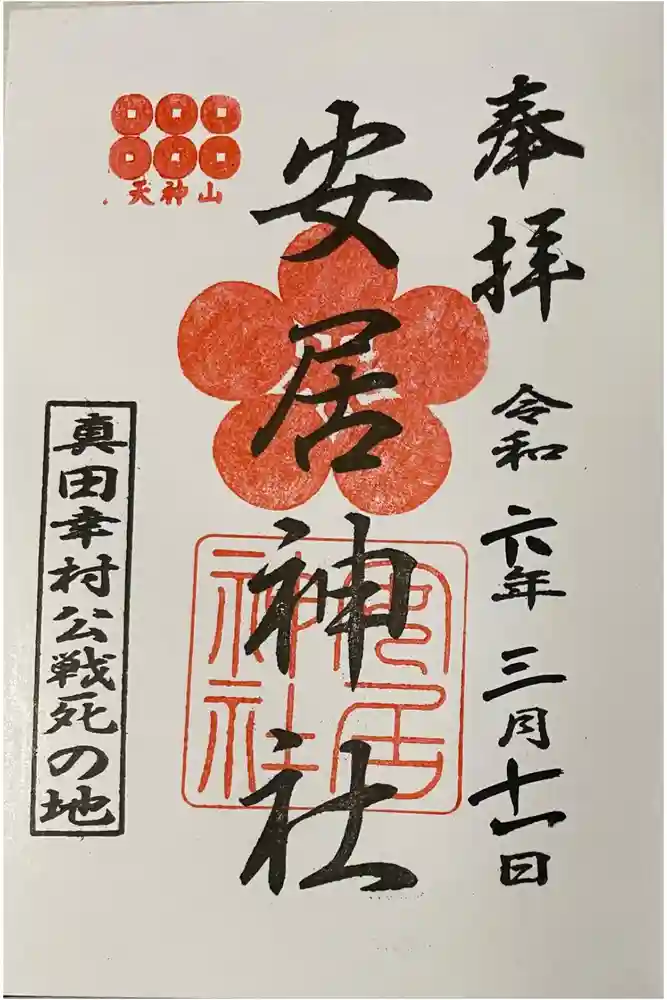 奉拝
令和六年三月十一日
安居神社
安居神社
天神山
真田幸村公戦死の地